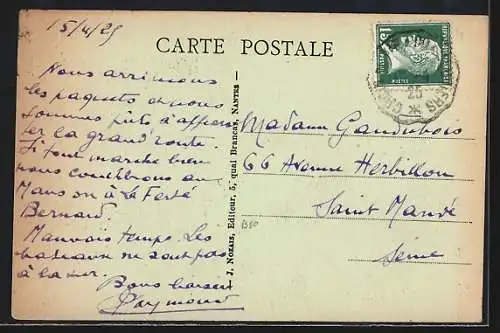 15/4/25
CARTE POSTALE
15c
POSTES
25
Nous arrimons
les paquets et nous
sommes prêts à
sur la grand'route.
Si tout marche bien
nous coucherons au
Mans ou à La Ferté
Bernard.
Mauvais temps. Les
bateaux ne sont pas
à la mer.
Bons baisers
Raymond
J. Nozais, Editeur, 5, quai Brancas, Nantes
Madame
66 Avenue Herbillon
Saint Mandé
Seine